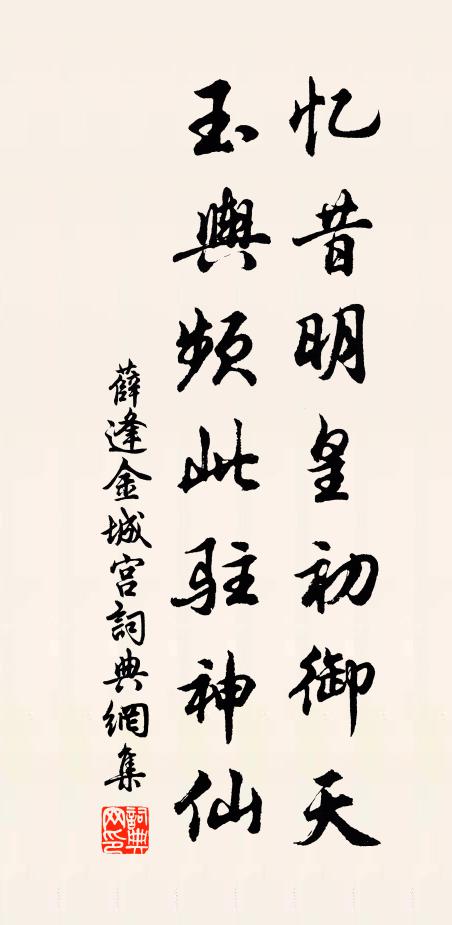 忆昔明皇初御天
玉輿频此驻神仙
薛逢金城宫詞典網集
詞典网印